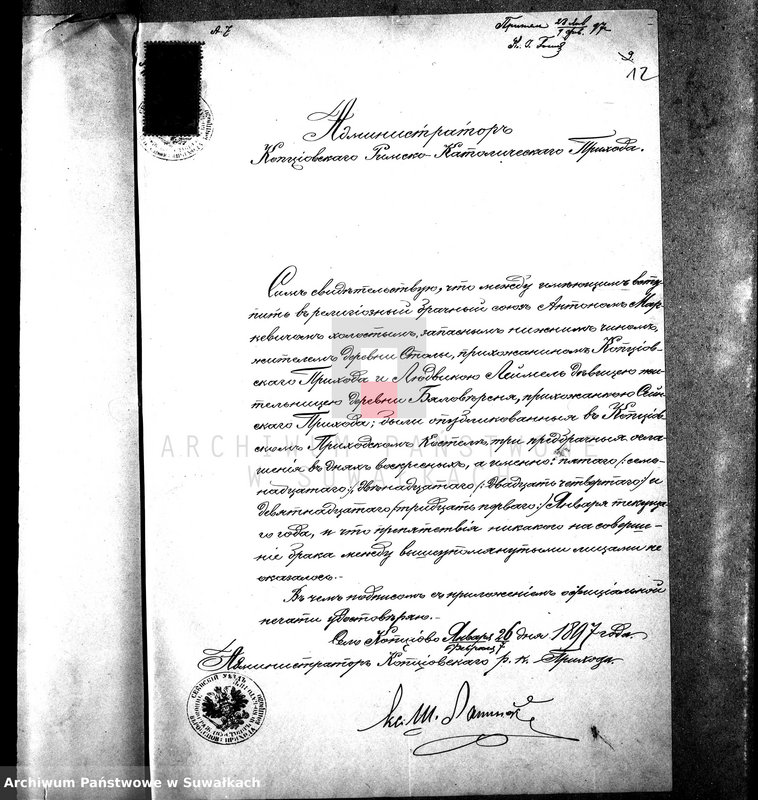 А 7
Принят 28 Янв / 9 фев 97
9
12
Администраторъ
Копціовскаго Римско-Католическаго Прихода.
Симъ свидѣтельствую, что между имѣющимъ всту-
пить въ религіозный брачный союз Антономъ Мар-
кевичомъ холостымъ, запаснымъ нижнимъ чиномъ,
жителемъ деревни Столы, прихожаниномъ Копціов-
скаго Прихода и Людвикою Леймель дѣвицею жи-
тельницею деревни Бяловѣрсня, прихожанкою Сейн
скаго Прихода; были опубликованныя въ Копціов
скомъ Приходскомъ Костелѣ, три предбрачныя огла-
шенія въ дняхъ воскресныхъ, а именно: пятаго /:семь
надцатаго:/ двѣнадцатаго /:двадцать четвертаго:/ и
девятнадцатаго /:тридцать перваго:/ Января текуща
го года, и что препятствія никакого на соверше-
ніе брака между вышеупомянутыми лицами не
оказалось.-
Въ чемъ подписомъ съ приложеніемъ оффиціальной
печати удостовѣряю.-
Село Копціово Января 26 дня 1897 года.
Февраля 7
Администраторъ Копціовскаго р. к. Прихода.
Кс. Ш.
СЕЙНСКІЙ УѢЗДЪ
ARCHIWUM PAŃSTWOWE
W SUWAŁKACH
Archiwum Państwowe w Suwałkach